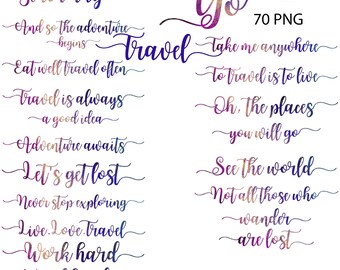 And so the adventure
begins
Eat well travel often
Travel is always
a good idea
Adventure awaits
Let's get lost
Never stop exploring
Live Love Travel
Work hard
Go
70 PNG
travel
Take me anywhere
To travel is to live
Oh, the places
you will go
See the world
Not all those who
wander
are lost